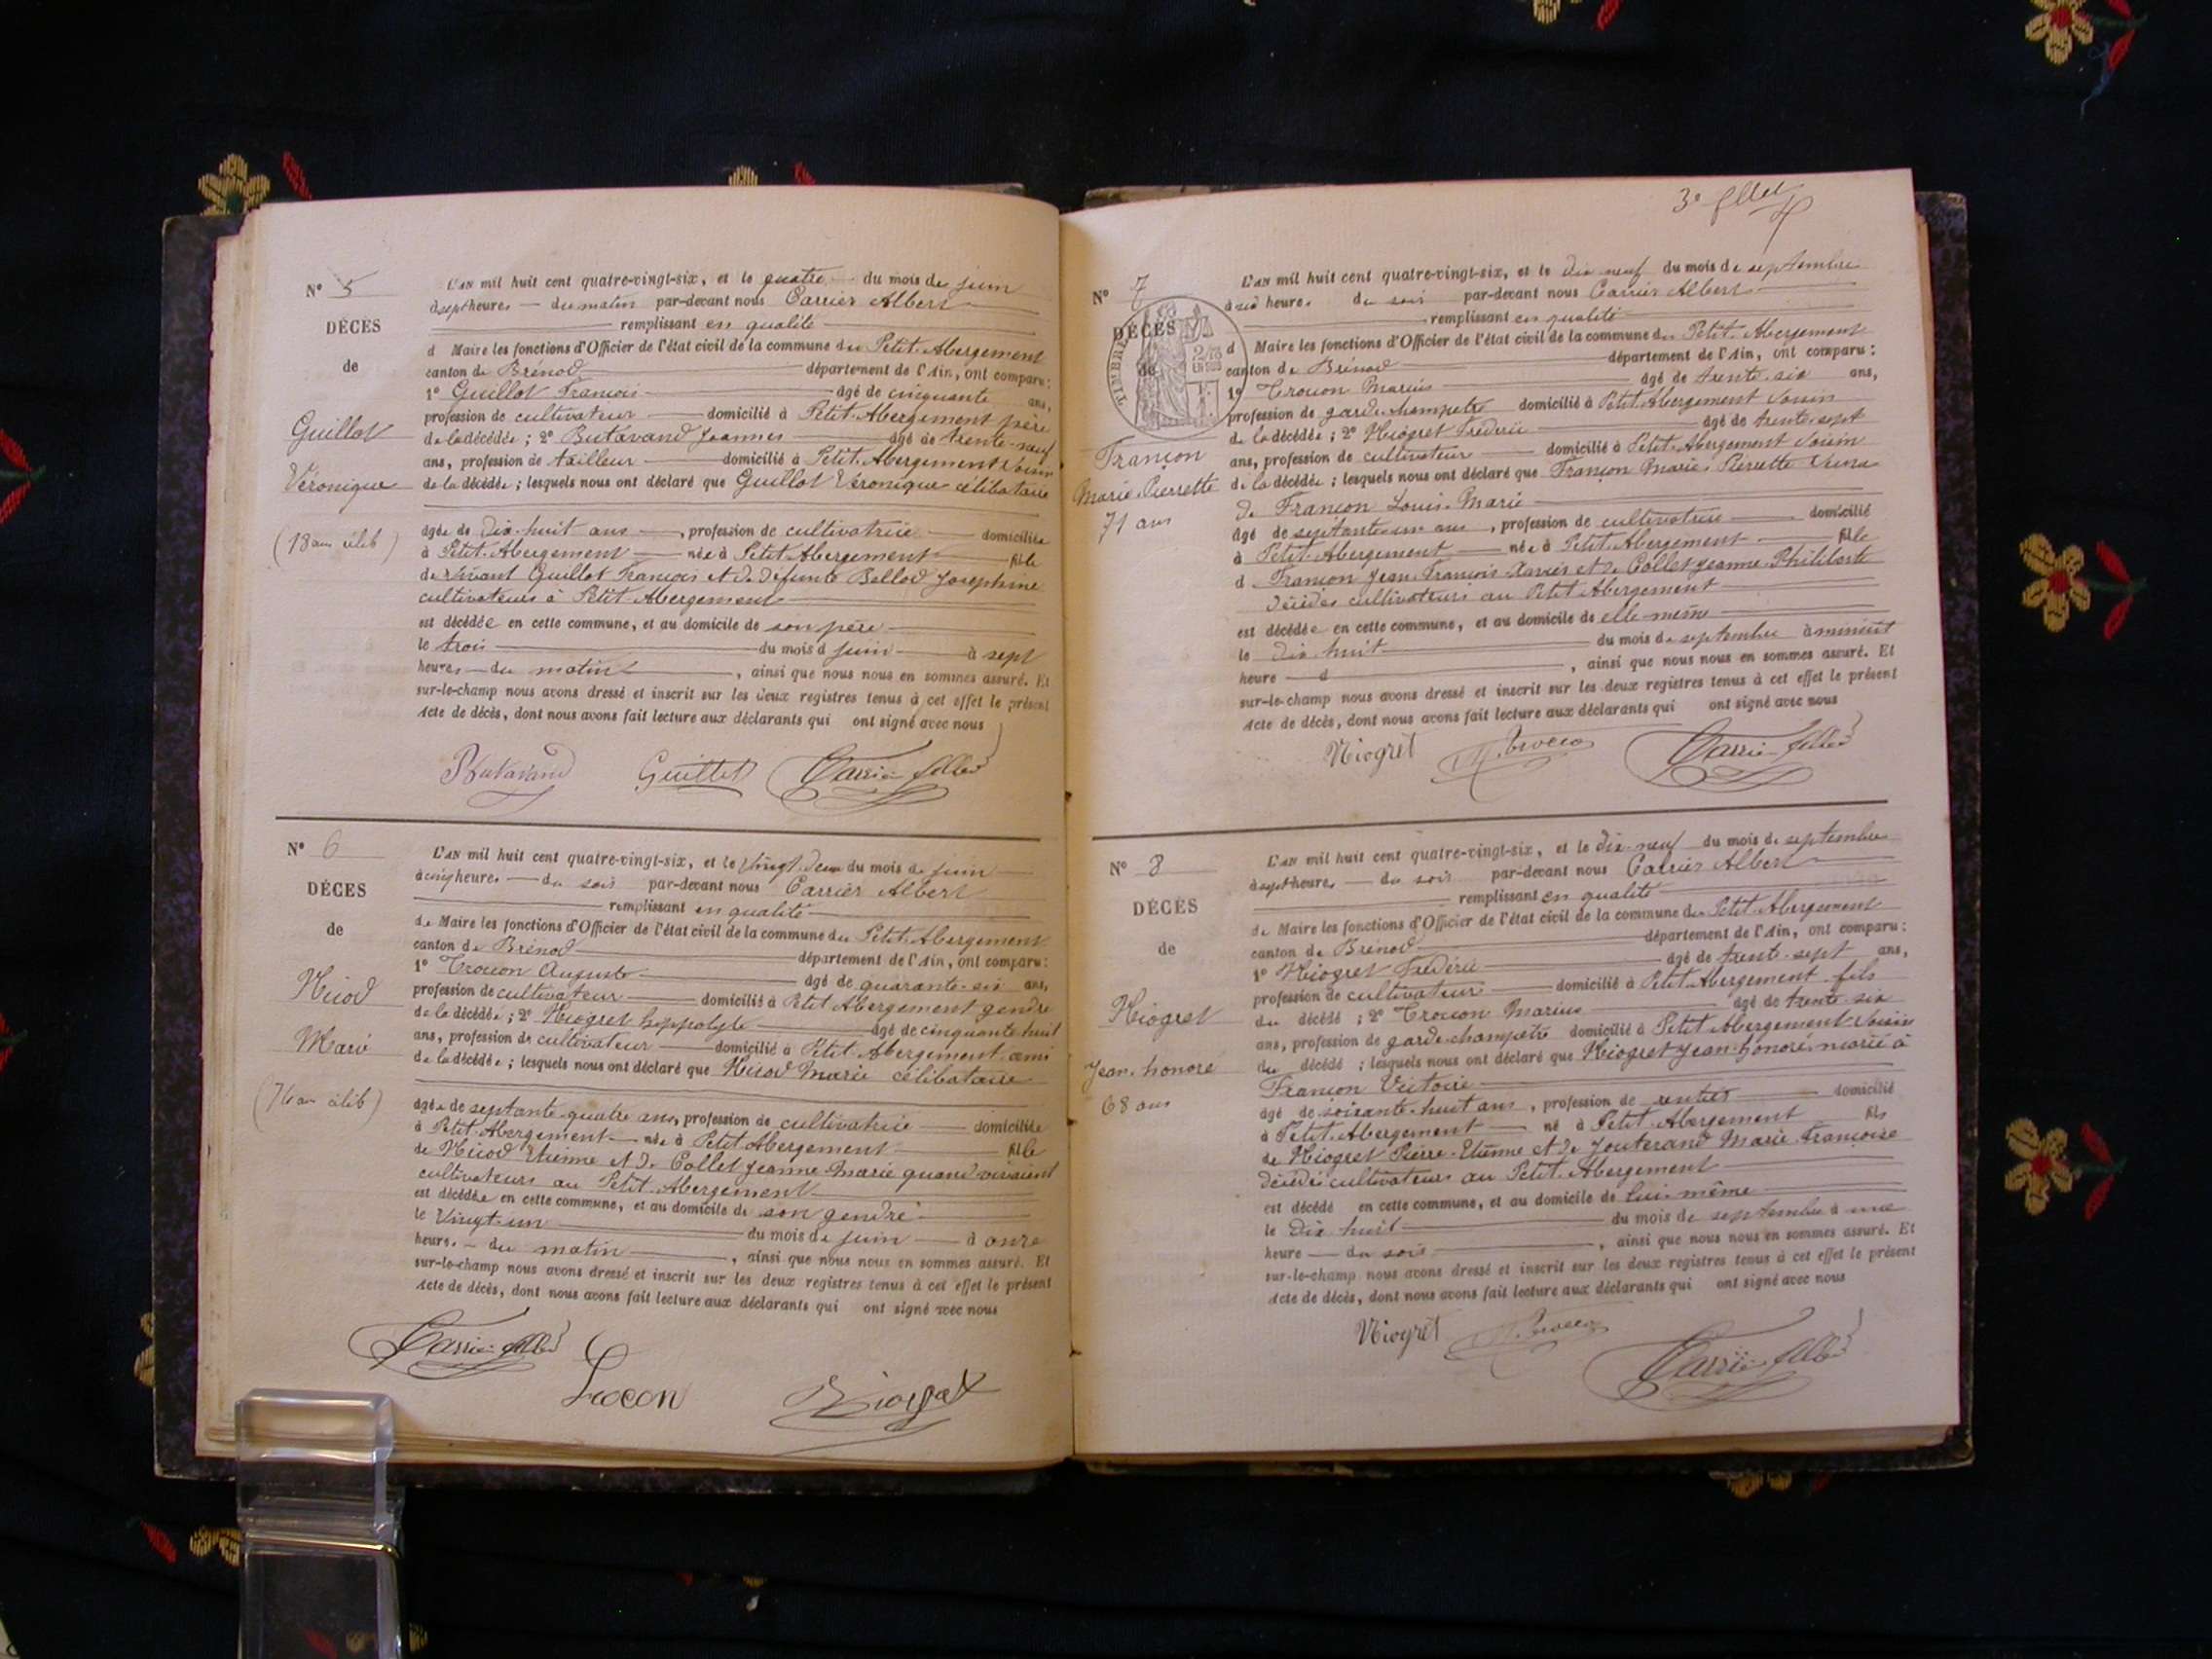 N° 5
DÉCÈS
de
Guillot
Véronique
(18 ans célib)
L'AN mil huit cent quatre-vingt-six, et le quatre du mois de juin
à sept heures du matin par-devant nous Carrier Albert
remplissant en qualité
d Maire les fonctions d'Officier de l'état civil de la commune du Petit-Abergement
canton de Brénod département de l'Ain, ont comparu:
1° Guillot François âgé de cinquante ans,
profession de cultivateur domicilié à Petit-Abergement père
de la décédée; 2° Butavand Joannes âgé de trente-neuf
ans, profession de tailleur domicilié à Petit-Abergement Voisin
de la décédée; lesquels nous ont déclaré que Guillot Véronique célibataire
âgée de dix-huit ans, profession de cultivatrice domiciliée
à Petit-Abergement née à Petit Abergement fille
de vivant Guillot François et de défunte Ballod Joséphine
cultivateurs à Petit-Abergement
est décédée en cette commune, et au domicile de son père
le trois du mois d juin à sept
heures du matin, ainsi que nous nous en sommes assuré. Et
sur-le-champ nous avons dressé et inscrit sur les deux registres tenus à cet effet le présent
acte de décès, dont nous avons fait lecture aux déclarants qui ont signé avec nous
Butavand Guillot Carrier Albert
N° 6
DÉCÈS
de
Nicod
Marie
célib)
L'AN mil huit cent quatre-vingt-six, et le vingt-deux du mois de juin
à cinq heures du soir par-devant nous Carrier Albert
remplissant en qualité
de Maire les fonctions d'Officier de l'état civil de la commune du Petit-Abergement
canton de Brénod département de l'Ain, ont comparu:
1° Trocon Auguste âgé de quarante-six ans,
profession de cultivateur domicilié à Petit Abergement gendre
de la décédée; 2° Niogret hippolyte âgé de cinquante huit
ans, profession de cultivateur domicilié à Petit-Abergement ami
de la décédée; lesquels nous ont déclaré que Nicod Marie célibataire
âgée de septante-quatre ans, profession de cultivatrice domiciliée
à Petit-Abergement née à Petit Abergement fille
de Nicod Etienne et de Collet Jeanne-Marie quand vivaient
cultivateurs au Petit-Abergement
est décédée en cette commune, et au domicile de son gendre
le vingt-un du mois de juin à onze
heures du matin, ainsi que nous nous en sommes assuré. Et
sur-le-champ nous avons dressé et inscrit sur les deux registres tenus à cet effet le présent
acte de décès, dont nous avons fait lecture aux déclarants qui ont signé avec nous
Carrier Albert
Trocon Niogret
N° 7
DÉCÈS
de
TIMBRE
Françon
Marie-Pierrette
71 ans
L'AN mil huit cent quatre-vingt-six, et le dix-neuf du mois de septembre
à six heures du soir par-devant nous Carrier Albert
remplissant en qualité
d Maire les fonctions d'Officier de l'état civil de la commune du Petit-Abergement
canton de Brénod département de l'Ain, ont comparu:
1° Trocon Marius âgé de trente-six ans,
profession de garde-champetre domicilié à Petit Abergement Voisin
de la décédée; 2° Niogret Frédéric âgé de trente-sept
ans, profession de cultivateur domicilié à Petit-Abergement Voisin
de la décédée; lesquels nous ont déclaré que Françon Marie-Pierrette Veuve
de Françon Louis-Marie
âgé de septante-un ans, profession de cultivatrice domicilié
à Petit-Abergement née à Petit-Abergement fille
d Françon Jean-François-Xavier et de Collet Jeanne-Philiberte
décédés cultivateurs au Petit Abergement
est décédée en cette commune, et au domicile de elle même
le dix-huit du mois de septembre à minuit
heure d, ainsi que nous nous en sommes assuré. Et
sur-le-champ nous avons dressé et inscrit sur les deux registres tenus à cet effet le présent
acte de décès, dont nous avons fait lecture aux déclarants qui ont signé avec nous
Niogret M. Trocon Carrier Albert
N° 8
DÉCÈS
de
Niogret
Jean-honoré
68 ans
L'AN mil huit cent quatre-vingt-six, et le dix-neuf du mois de septembre
à sept heures du soir par-devant nous Carrier Albert
remplissant en qualité
de Maire les fonctions d'Officier de l'état civil de la commune du Petit-Abergement
canton de Brénod département de l'Ain, ont comparu:
1° Niogret Frédéric âgé de trente-sept ans,
profession de cultivateur domicilié à Petit-Abergement fils
du décédé; 2° Trocon Marius âgé de trente six
ans, profession de garde-champetre domicilié à Petit Abergement Voisin
du décédé; lesquels nous ont déclaré que Niogret Jean-honoré marié à
Françon Victoire
âgé de soixante-huit ans, profession de rentier domicilié
à Petit-Abergement né à Petit-Abergement fils
de Niogret Pierre-Etienne et de Jouterand Marie-Françoise
décédés cultivateurs au Petit-Abergement
est décédé en cette commune, et au domicile de lui-même
le dix-huit du mois de septembre à une
heure du soir, ainsi que nous nous en sommes assuré. Et
sur-le-champ nous avons dressé et inscrit sur les deux registres tenus à cet effet le présent
acte de décès, dont nous avons fait lecture aux déclarants qui ont signé avec nous
Niogret M. Trocon
Carrier Albert